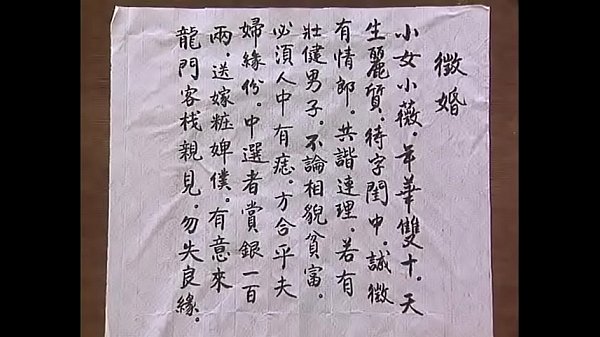 徵婚
小女小薇。年華雙十。天
生麗質。待字閨中。誠徵
有情郎。共諧連理。若有
壯健男子。不論相貌貧富。
必須人中有痣。方合乎夫
婦緣份。中選者賞銀一百
兩。送嫁粧婢僕。有意來
龍門客栈親見。勿失良緣。